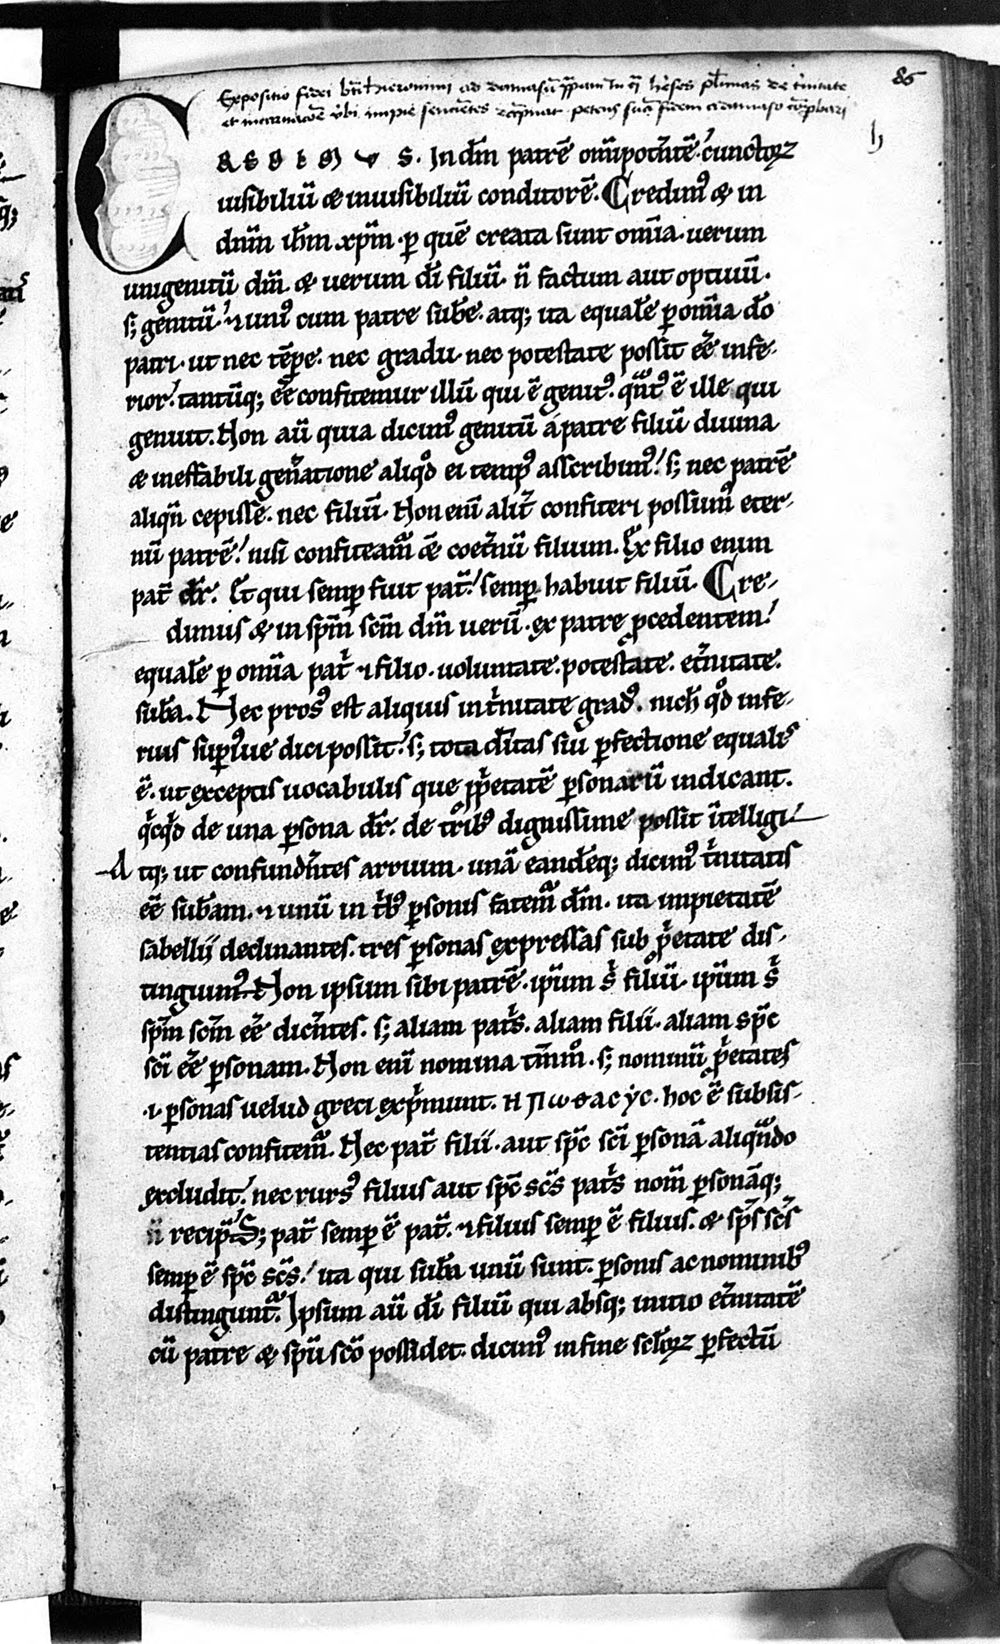 86
Expositio fidei bti Hieronimi ad damasū ꝑpam in q̄ hẻses plimas de tinitate
et incarnacōe vbi impie sencientes dapnat petens suā fidem a damaso cōprobari
h
CREDIMUS. In dm̄ patrē om̅ipotn̄tē. cunctoꝝ
uisibiliū & inuisibiliū conditorē. Credim᾿ & in
dn̄m ih̄m xp̄m. ꝑ quē creata sunt om̄ia. uerum
unigenitū dm̄. & uerum dī filiū. n̄ factum aut optiuū.
s; genitū. ⁊ uni᾿ cum patre sub̄e. atq; ita equalē ꝑ om̄ia dō
patri. ut nec tēpe. nec gradu. nec potestate possit eē̄ infe-
rior. tantūq; eē̄ confitemur illū qui ē genit᾿. qn̄t᾿ ē ille qui
genuit. Non aū quia dicim᾿ genitū á patre filiū diuina
& ineffabili gen̄atione aliqd̊ ei temp᾿ asscribim᾿. s; nec patrē
aliqn̄ cepisse. nec filiū. Non enī alit̄ confiteri possum᾿ eter-
nū patrē. nisi confiteam̄ &̄ coet̄nū filium. Ex filio enim
pat̄ dr̄. Et qui semꝑ fuit pat̄. semꝑ habuit filiū. Cre-
dimus & in sp̄m sc̄m dm̄ uerū. ex patre ꝓcedentem.
equalē ꝑ om̄ia pat̄ ⁊ filio. uoluntate. potestate. et̄nitate.
sub̄a. Nec pros᾿ est aliquis in t̄nitate grad᾿. nich̄ qd̊ infe-
rius supi᾿ue dici possit. s; tota dīitas siū ꝑfectione equalis
ē. ut exceptis uocabulis que ꝓp̄etatē ꝑsonarū indicant.
qc̄qd̊ de una ꝑsona dr̄. de trib᾿ dignissime possit ītelligi
Atq; ut confundn̄tes arrium. unā eandēq; dicim᾿ t̄nitatis
eē̄ sub̄am. ⁊ unū in t̄b᾿ ꝑsonis fatem̄ dm̄. ita impietatē
sabellij declinantes. tres ꝑsonas expressas sub ꝓp̄etate dis-
tinguim᾿. Non ipsum sibi patrē. ip̄um s᾿ filiū. ip̄um s᾿
sp̄m sc̄m eē̄ dicn̄tes. s; aliam pat̄s. aliam filii. aliam sp̄c
sc̄i eē̄ ꝑsonam. Non enī nomina tm̄m᾿. s; nominū ꝓp̄etates
.i. ꝑsonas uelud greci exp̄munt. Η Π ω σ α c ẏ c. hoc ē subsis-
tentias confitem̄. Nec pat̄ filii. aut sp̄c sc̄i ꝑsonā aliqn̄do
excludit. nec rurs᾿ filius aut sp̄c sc̄s pat̄s nom̄ ꝑsonāq;
n̄ recip̄. S; pat̄ semꝑ ē pat̄. ⁊ filius semꝑ ē filius. & sp̄s sc̄s
semꝑ ē sp̄c sc̄s. ita qui sub̄a unū sunt. ꝑsonis ac nominib᾿
distingunt̄. Ipsum aū dī filiū qui absq; initio et̄nitatē
cū patre & sp̄u sc̄o possidet. dicim᾿ in fine sc̄loꝝ ꝑfectū